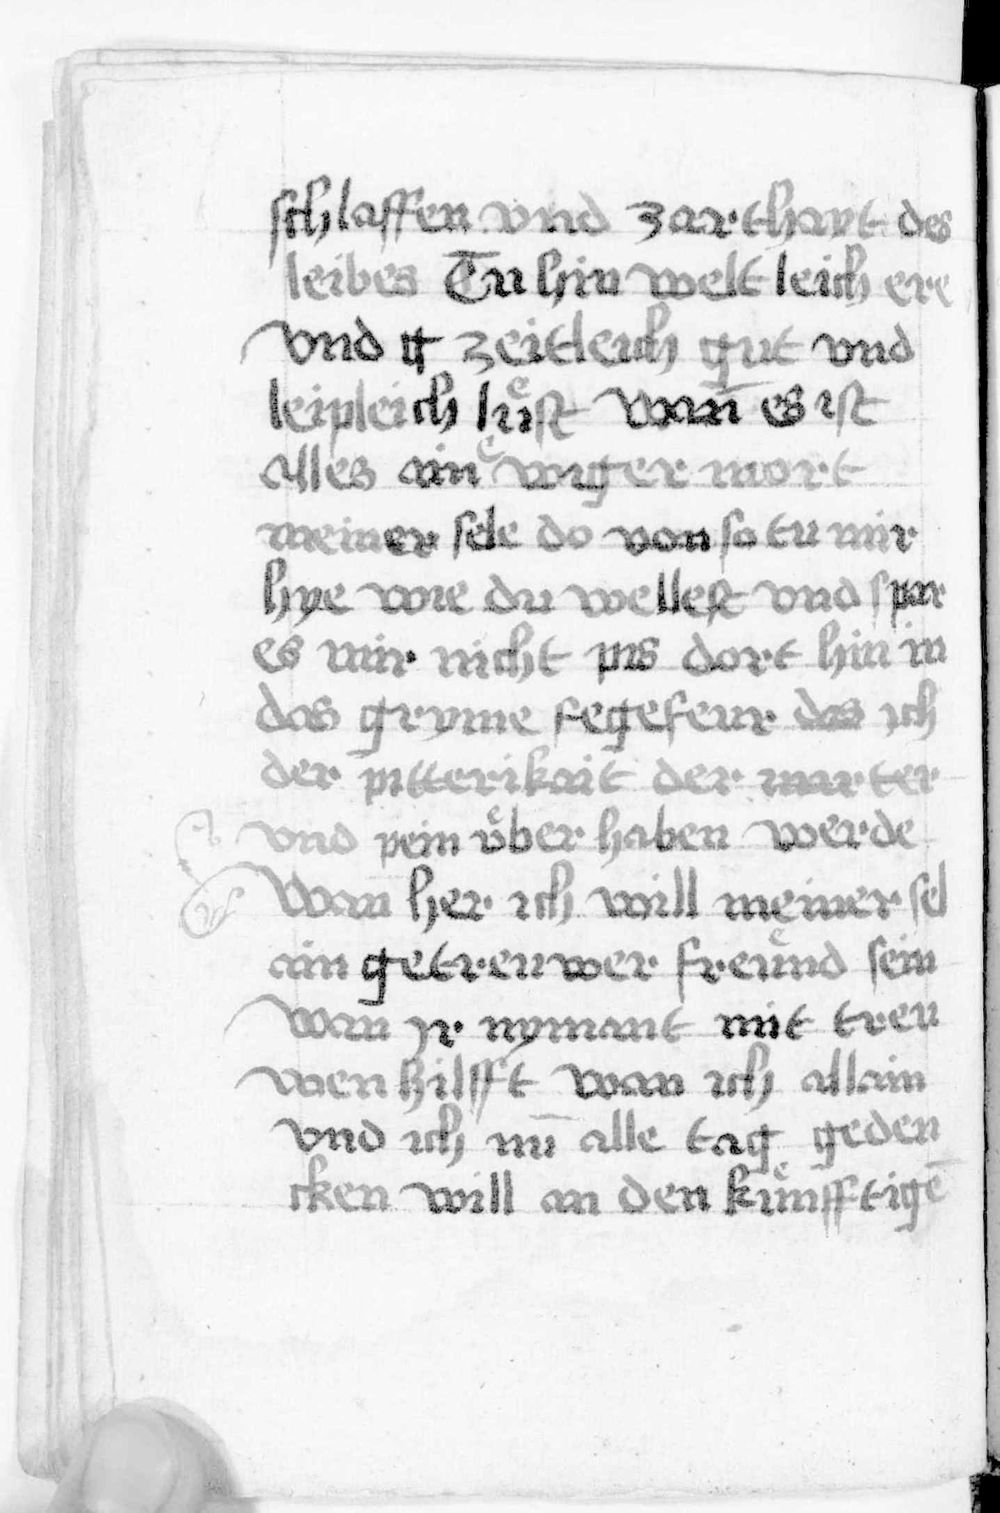 schlaffen vnd zarthayt des
leibes Tu hin weltleich ere
vnd zeitleich gut vnd
leipleich luͤst wan̄ es ist
alles ain eͤwiger mort
meiner sele do von so tu mir
hye wie du wellest vnd spar
es mir nicht pis dort hin in
das gryme fegefeur das ich
der pitterikait der marter
vnd pein uͤber haben werde
Wan her ich will meiner sel
ain getreuwer freuͤnd sein
wan jr nymant mit treu
wen hilfft wan ich allain
vnd ich nū alle tag geden
cken will an den kuͤnfftigē